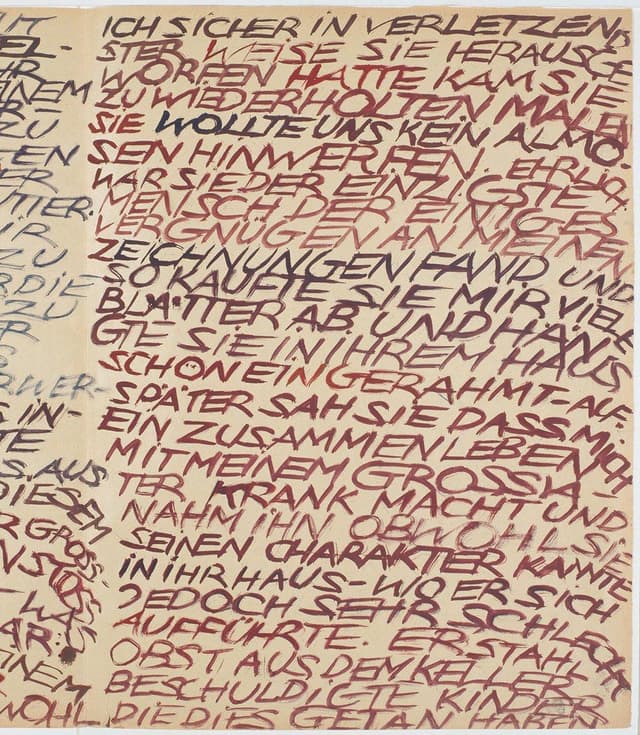 UT
EL-
HR
EINEM
ZU
EEN
ER
UTTER.
IR
ZU
RDIE
ZU
R
RWER-
S IN-
TE
S. AUS
DIESEM
R GROSS-
- WAS
AR.
EINEM
WOHL
ICH SICHER IN VERLETZEND
STER WEISE SIE HERAUSGE
WORFEN HATTE KAM SIE
ZU WIEDERHOLTEN MALEN
SIE WOLLTE UNS KEIN ALMO
SEN HINWERFEN EHRLICH
WAR SIE DER EINZIGSTE
MENSCH DER EINIGES
VERGNÜGEN AN MEINEN
ZEICHNUNGEN FAND UND
SO KAUFTE SIE MIR VIELE
BLÄTTER AB UND HÄNS
GTE SIE IN IHREM HAUS
SCHÖN EINGERAHMT-AUF-
SPÄTER SAH SIE DASS MICH
EIN ZUSAMMEN LEBEN
MIT MEINEM GROSSVA-
TER KRANK MACHT UND
NAHM IHN OBWOHL SIE
SEINEN CHARAKTER KANNTE
IN IHR HAUS-WO ER SICH
JEDOCH SEHR SCHLECHT
AUFFÜHRTE ER STAHL
OBST AUS DEM KELLER
BESCHULDIGTE KINDER
DIE DIES GETAN HABEN